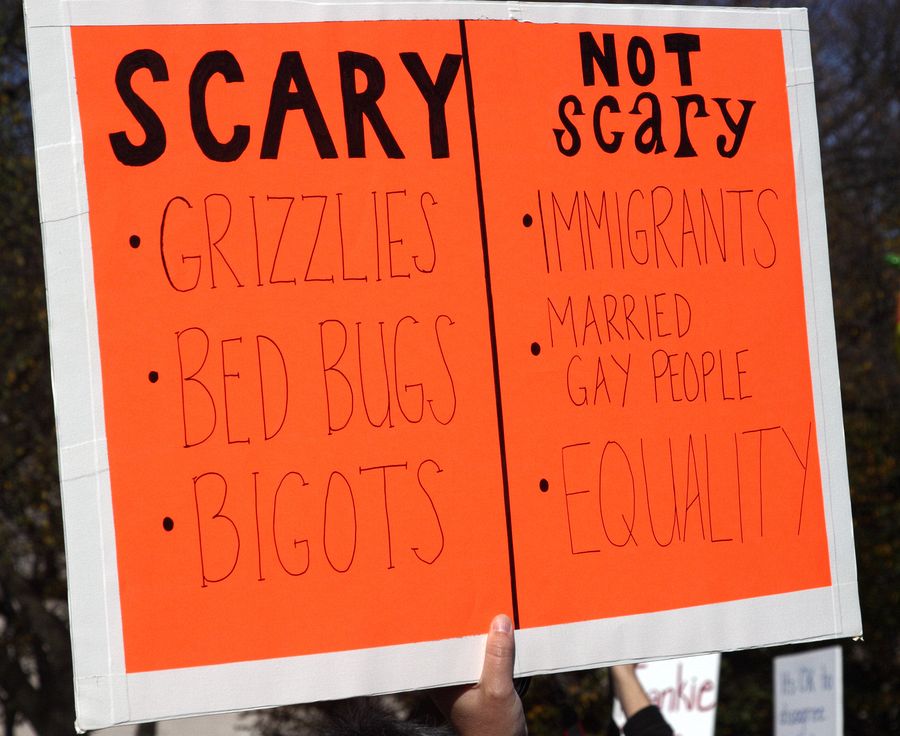 SCARY
• GRIZZLIES
• BED BUGS
• BIGOTS
NOT
Scary
• IMMIGRANTS
• MARRIED
GAY PEOPLE
• EQUALITY
It's OK to
disagree